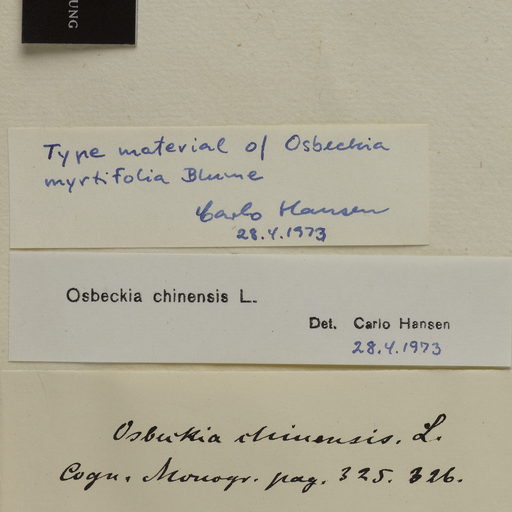 UNG
Type material of Osbeckia
myrtifolia Blume
Carlo Hansen
28.4.1973
Osbeckia chinensis L.
Det. Carlo Hansen
28.4.1973
Osbeckia chinensis. L.
Cogn. Monogr. pag. 325. 326.